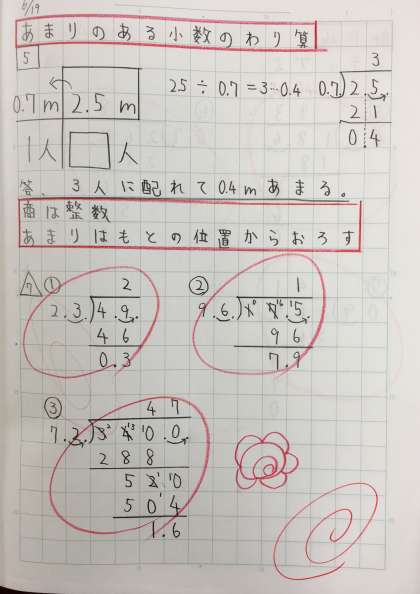 6/19
あまりのある小数のわり算
5
0.7m 2.5m
1人 □人
2.5÷0.7=3…0.4
3
0.7)2.5
2 1
0.4
答、3人に配れて0.4mあまる。
商は整数
あまりはもとの位置からおろす
7
① 2
2.3)4.9
4 6
0.3
② 1
9.6)17.5
9 6
7.9
③ 4 7
7.2)340.0
2 8 8
5 2 0
5 0 4
1.6